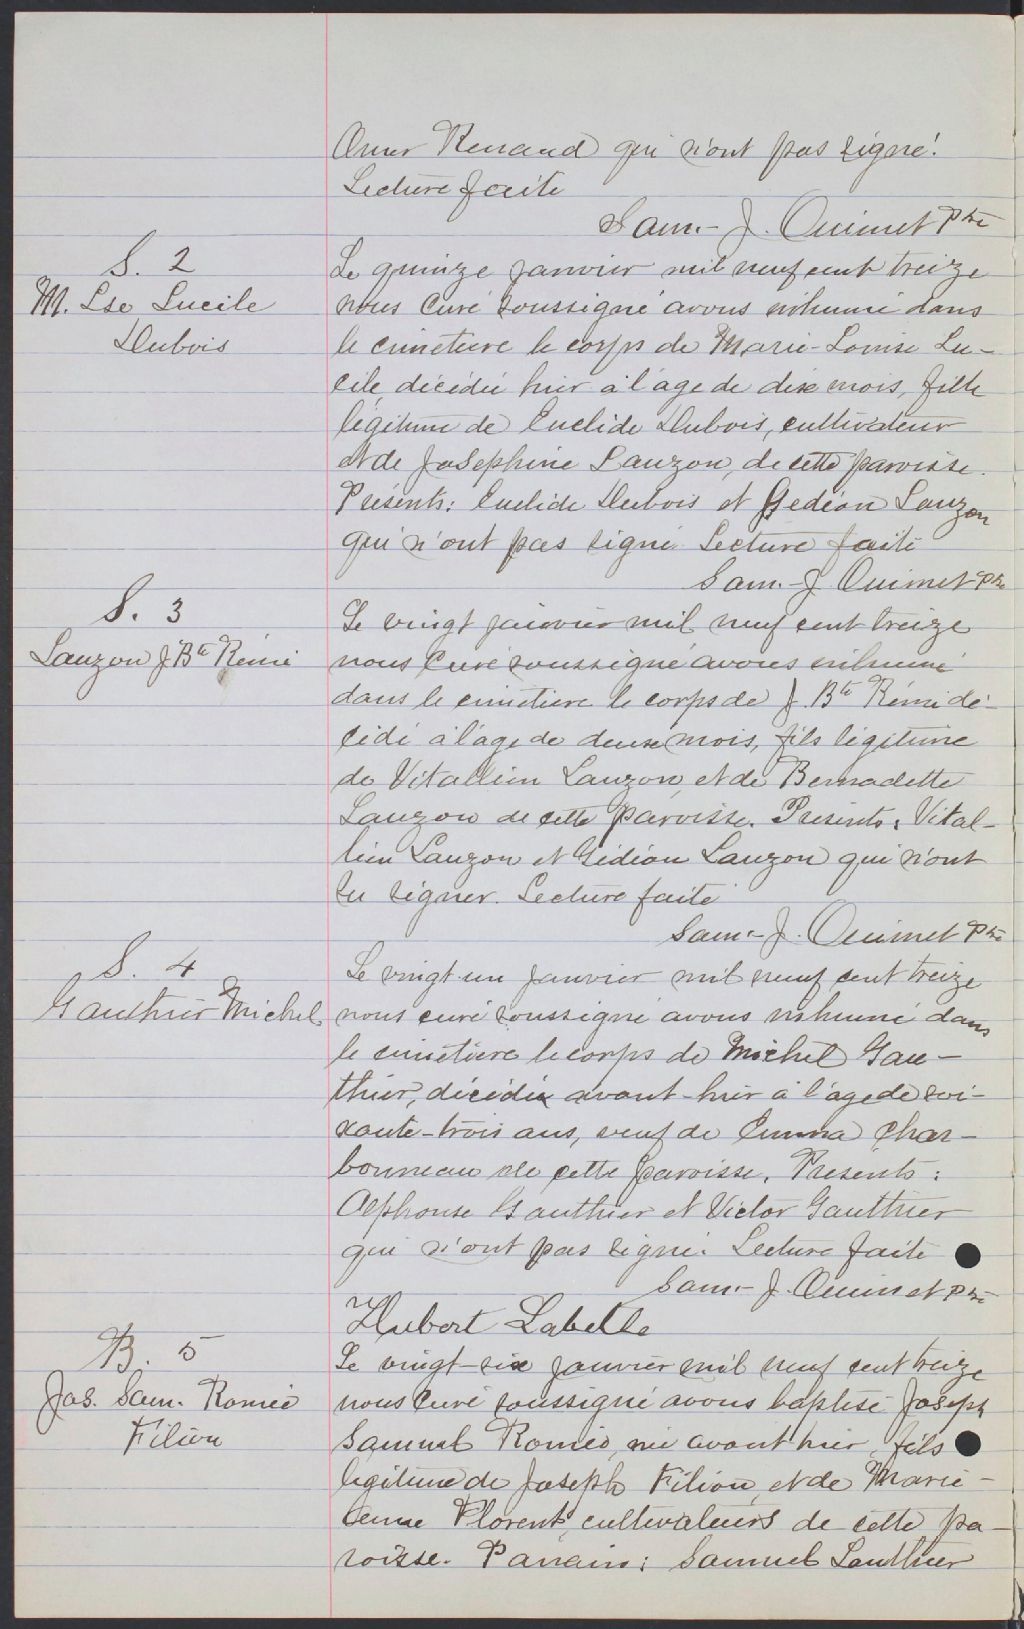 Omer Renaud qui n'ont pas signé.
Lecture faite
Sam.- J. Ouimet Ptre
S. 2
M. Lse Lucile
Dubois
Le quinze janvier mil neuf cent treize
nous Curé soussigné avons inhumé dans
le cimetière le corps de Marie-Louise Lu-
cile, décédée hier à l'age de dix mois, fille
légitime de Euclide Dubois, cultivateur
et de Joséphine Lauzon, de cette paroisse.
Présents: Euclide Dubois et Gédéon Lauzon
qui n'ont pas signé. Lecture faite
Sam.- J. Ouimet Ptre
S. 3
Lauzon J. Bte Rémi
Le vingt janvier mil neuf cent treize
nous Curé soussigné avons inhumé
dans le cimetière le corps de J. Bte Rémi dé-
cédé à l'age de deux mois, fils légitime
de Vitallien Lauzon, et de Bernadette
Lauzon de cette paroisse. Présents: Vital-
lien Lauzon et Gédéon Lauzon qui n'ont
su signer. Lecture faite
Sam.- J. Ouimet Ptre
S. 4
Gauthier Michel
Le vingt-un janvier mil neuf cent treize
nous curé soussigné avons inhumé dans
le cimetière le corps de Michel Gau-
thier, décédé avant-hier à l'age de soi-
xante-trois ans, veuf de Emma Char-
bonneau de cette paroisse. Présents:
Alphonse Gauthier et Victor Gauthier
qui n'ont pas signé. Lecture faite
Sam.- J. Ouimet Ptre
Hubert Labelle
B. 5
Jos. Sam. Roméo
Filion
Le vingt-six janvier mil neuf cent treize
nous Curé soussigné avons baptisé Joseph
Samuel Roméo, né avant hier, fils
légitime de Joseph Filion, et de Marie-
Anne Florent, cultivateurs de cette pa-
roisse. Parrain: Samuel Gauthier